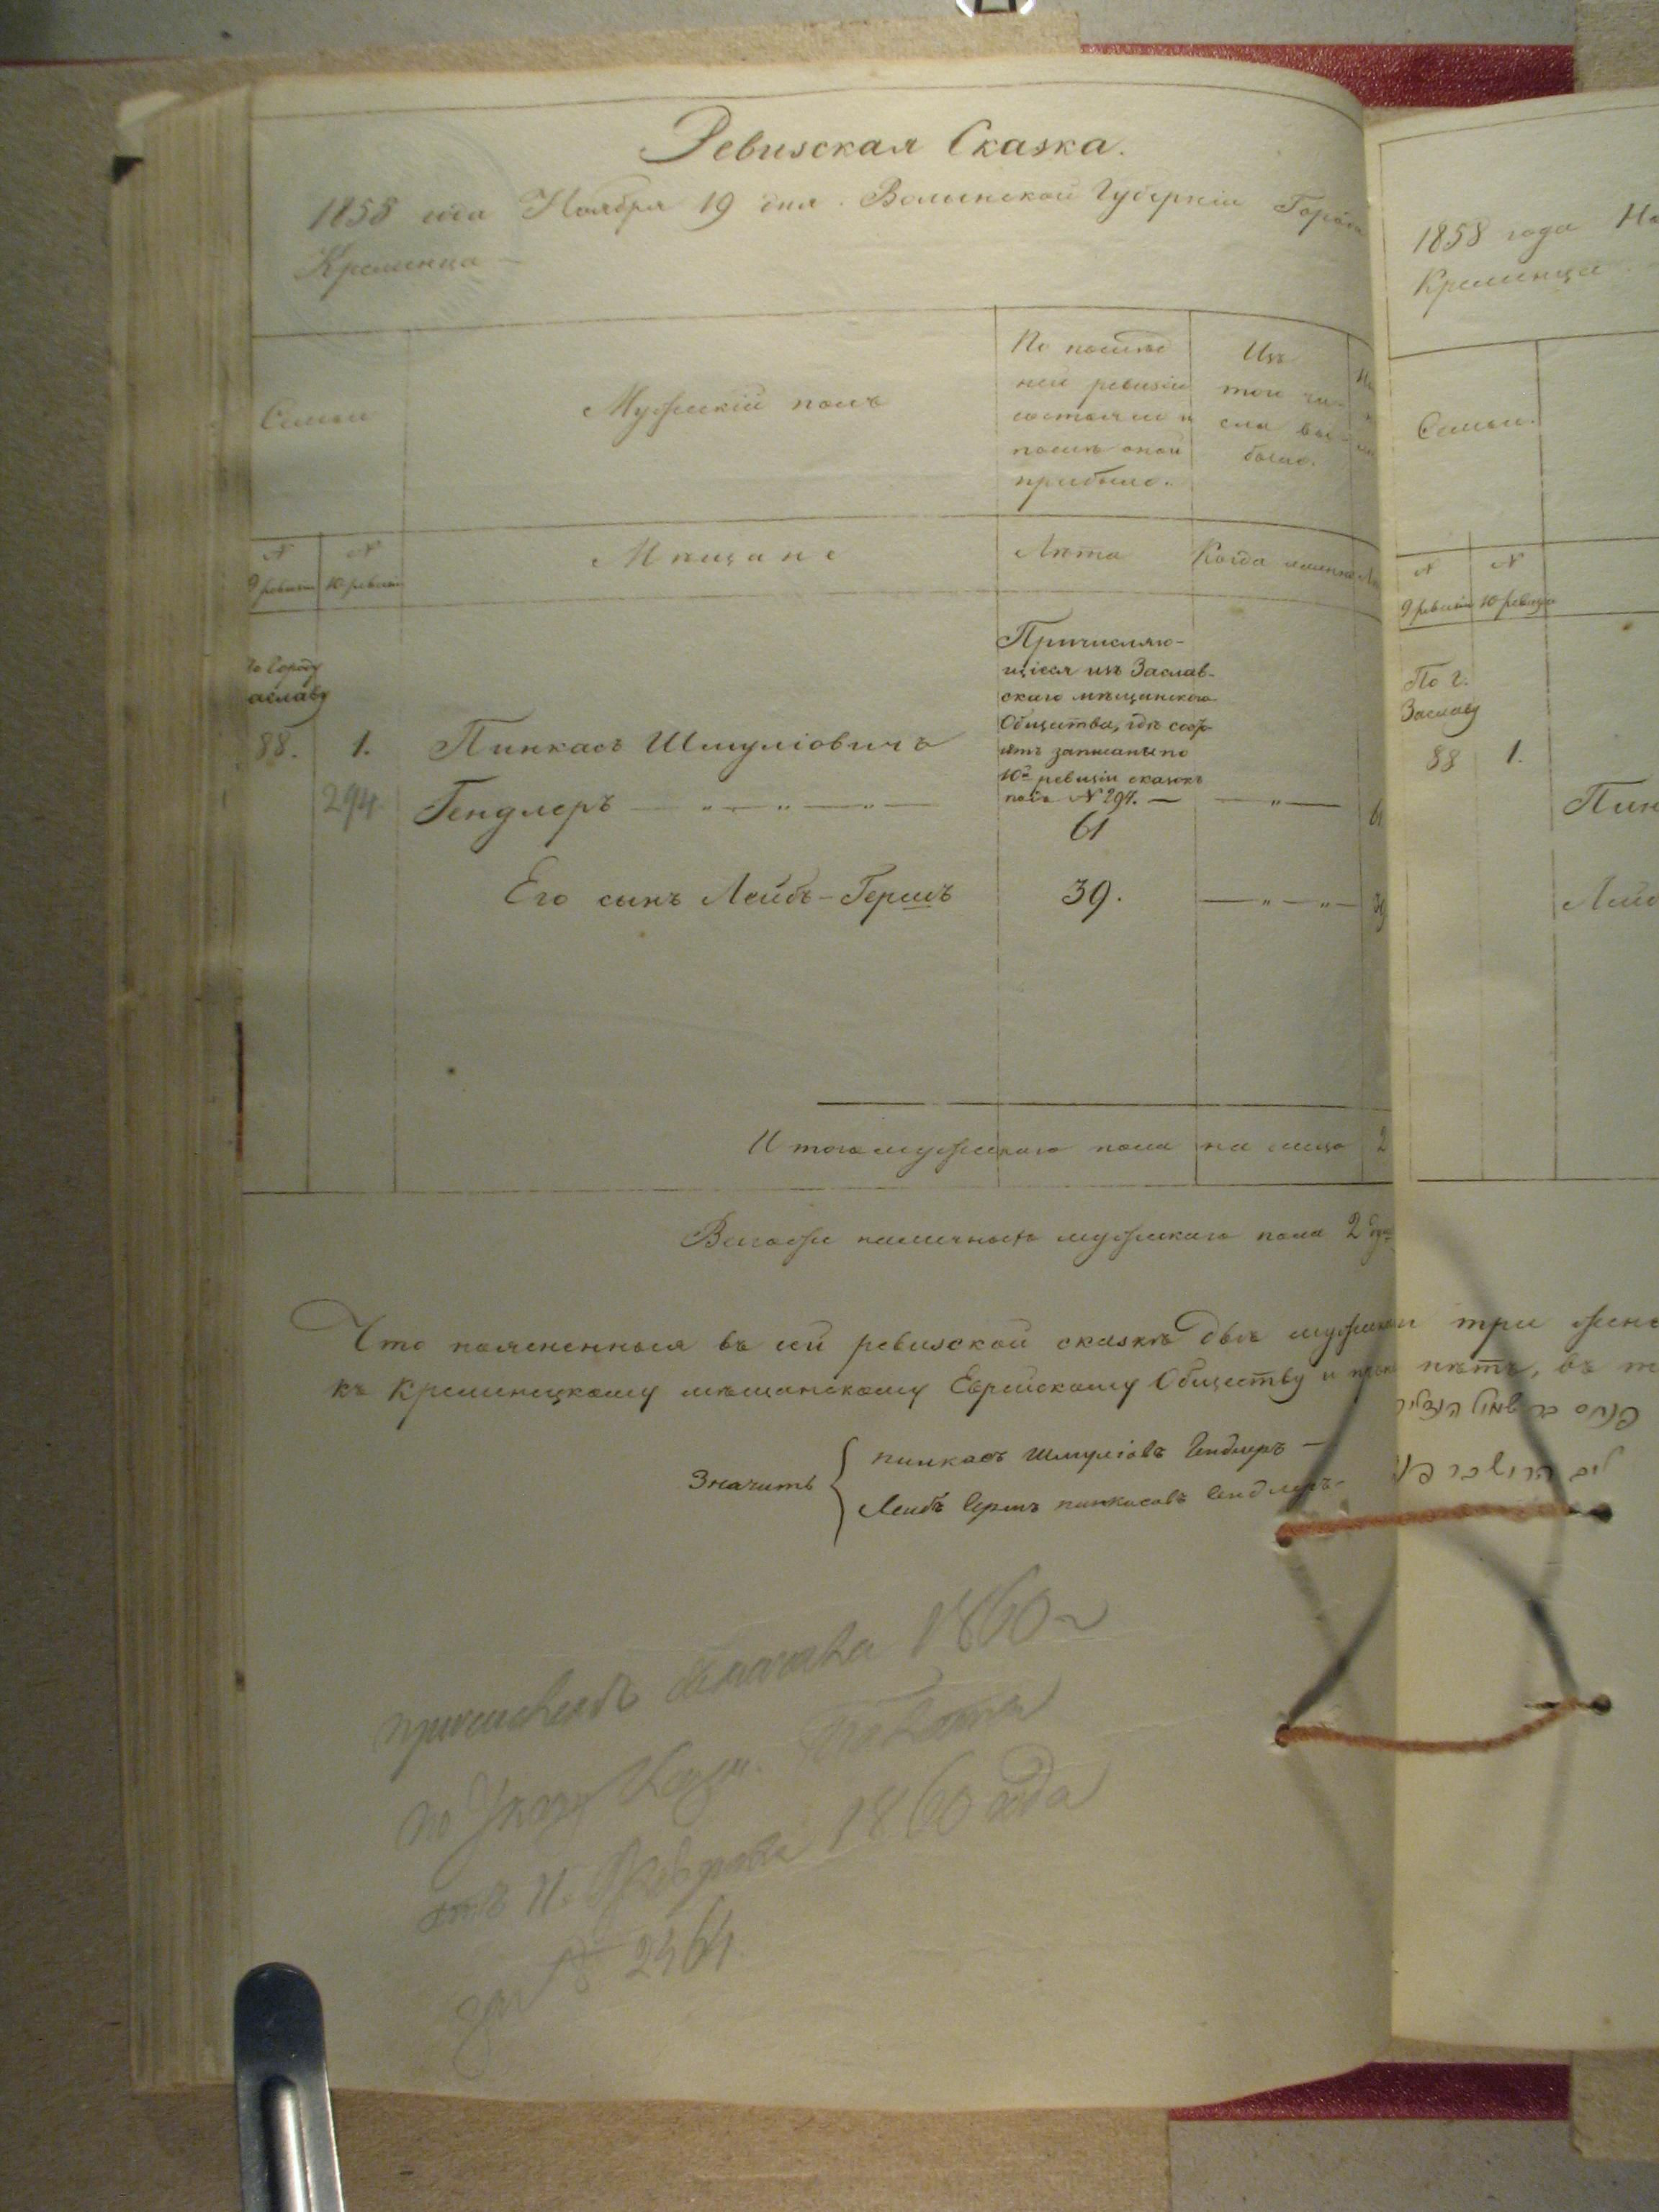 Ревизская Сказка.
1858 года Ноября 19 дня. Волынской Губерніи Города
Кременца
Семьи
Мужескій полъ
По послѣд
ней ревизіи
состояло и
послѣ оной
прибыло.
Изъ
того чи-
сла вы-
было.
№
9 ревизіи
№
10 ревизіи
Мѣщане
Лѣта
Когда именно
По Городу
Заславу
88.
1.
294
Пинкасъ Шмуліовичъ
Гендлеръ — „ — „ — „ —
Причисляю-
щіеся изъ Заслав-
скаго мѣщанскаго
Общества, гдѣ состо
ятъ записаны по
10й ревизіи сказкѣ
подъ № 297. —
61
— „ —
61
Его сынъ Лейбъ-Гершъ
39.
— „ — „ —
39
Итого мужескаго пола на лицо 2
Всего наличнаго мужескаго пола 2 ду
Что поясненныя въ сей ревизской сказкѣ двѣ мужеска и три женс
къ Кременецкому мѣщанскому Еврейскому Обществу и нѣтъ, въ т
פנחס בר שמואל הענדליר
ליב הירש בר פ
Значитъ
Пинкасъ Шмуліовъ Гендлеръ —
Лейбъ Гершъ Пинкасовъ Гендлеръ -
1860
по Указу Казен. Палаты
отъ 11. Февраля 1860 года
за № 2461.
1858 года Но
Кременца
Семьи.
№
9 ревизіи
№
10 ревизіи
По г.
Заславу
88
1.
Пин
Лейб